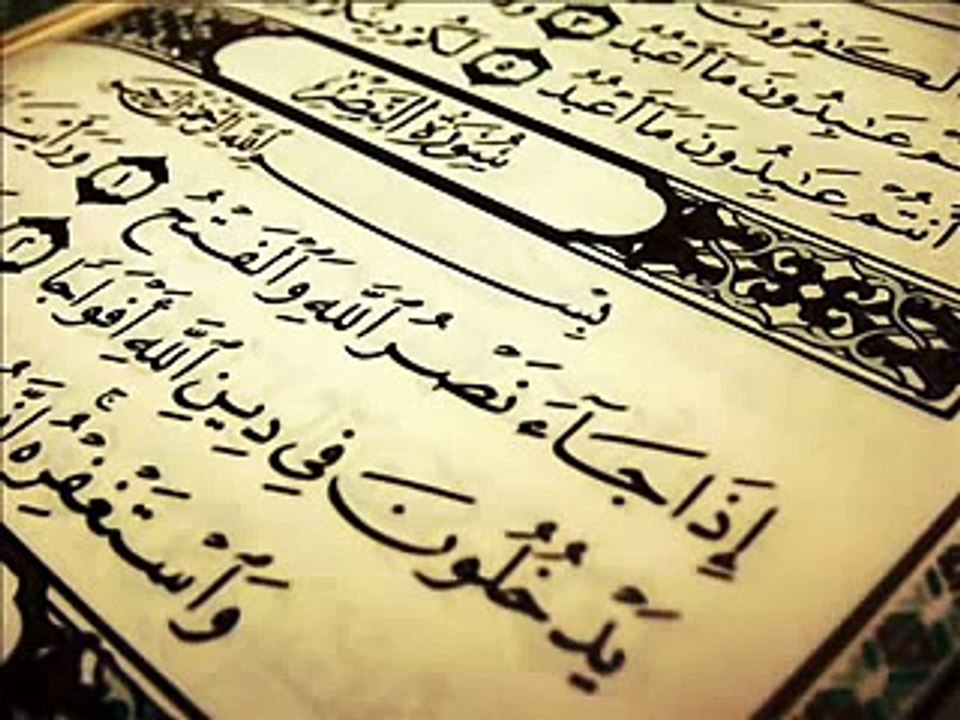 لْكَـٰفِرُونَ
عَـٰبِدُونَ مَآ أَعْبُدُ ٣
أَنتُمْ عَـٰبِدُونَ مَآ أَعْبُدُ ٥ لَكُمْ
سُورَةُ النَّصْرِ
بِسْمِ ٱللَّهِ ٱلرَّحْمَـٰنِ ٱلرَّحِيمِ
إِذَا جَآءَ نَصْرُ ٱللَّهِ وَٱلْفَتْحُ ١ وَرَأَيْتَ
يَدْخُلُونَ فِى دِينِ ٱللَّهِ أَفْوَاجًا ٢
وَٱسْتَغْفِرْهُ ۚ